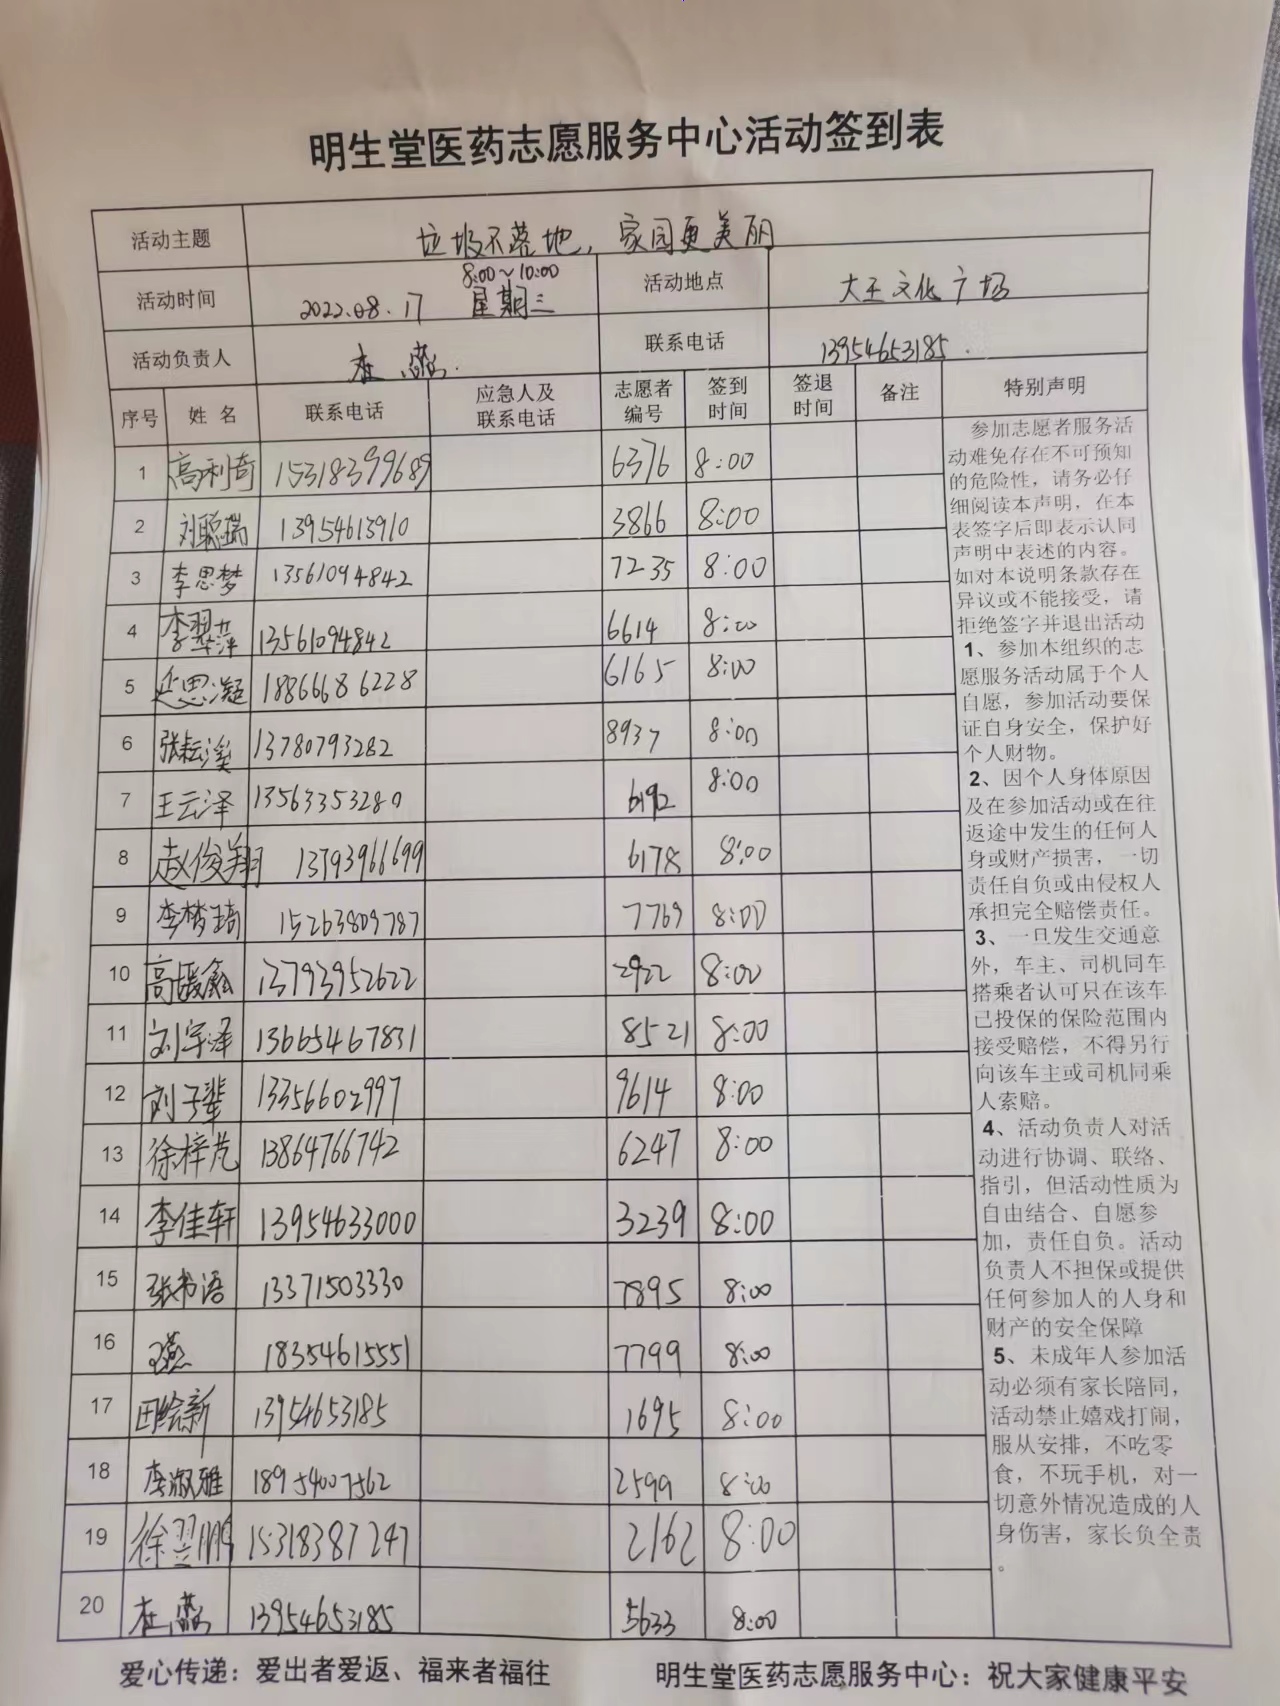 明生堂医药志愿服务中心活动签到表
活动主题 垃圾不落地，家园更美丽
活动时间 2022.08.17 8:00～10:00 星期三 活动地点 大王文化广场
活动负责人 杜 联系电话 13954653185.
序号 姓名 联系电话 应急人及联系电话 志愿者编号 签到时间 签退时间 备注 特别声明
1 高利奇 15318399689 6376 8:00
2 刘聪瑞 13954613910 3866 8:00
3 李思梦 13561094842 7235 8:00
4 李翠萍 13561094842 6614 8:00
5 思凝 18866686228 6165 8:00
6 张耘溪 13780793282 8937 8:00
7 王云泽 13563353280 6192 8:00
8 赵俊翔 13793966699 6178 8:00
9 李梦琦 15263809787 7769 8:00
10 高媛鑫 13793952622 2922 8:00
11 刘宇泽 13665467831 8521 8:00
12 刘子辈 13356602997 9614 8:00
13 徐梓芃 13864766742 6247 8:00
14 李佳轩 13954633000 3239 8:00
15 张书语 13371503330 7895 8:00
16 燕 18354615551 7799 8:00
17 田绘新 13954653185 1695 8:00
18 李淑雅 18954007562 2599 8:00
19 徐翌鹏 15318387247 2162 8:00
20 杜 13954653185 5633 8:00
参加志愿者服务活
动难免存在不可预知
的危险性，请务必仔
细阅读本声明，在本
表签字后即表示认同
声明中表述的内容。
如对本说明条款存在
异议或不能接受，请
拒绝签字并退出活动
1、参加本组织的志
愿服务活动属于个人
自愿，参加活动要保
证自身安全，保护好
个人财物。
2、因个人身体原因
及在参加活动或在往
返途中发生的任何人
身或财产损害，一切
责任自负或由侵权人
承担完全赔偿责任。
3、一旦发生交通意
外，车主、司机同车
搭乘者认可只在该车
已投保的保险范围内
接受赔偿，不得另行
向该车主或司机同乘
人索赔。
4、活动负责人对活
动进行协调、联络、
指引，但活动性质为
自由结合、自愿参
加，责任自负。活动
负责人不担保或提供
任何参加人的人身和
财产的安全保障
5、未成年人参加活
动必须有家长陪同，
活动禁止嬉戏打闹，
服从安排，不吃零
食，不玩手机，对一
切意外情况造成的人
身伤害，家长负全责
。
爱心传递：爱出者爱返、福来者福往 明生堂医药志愿服务中心：祝大家健康平安